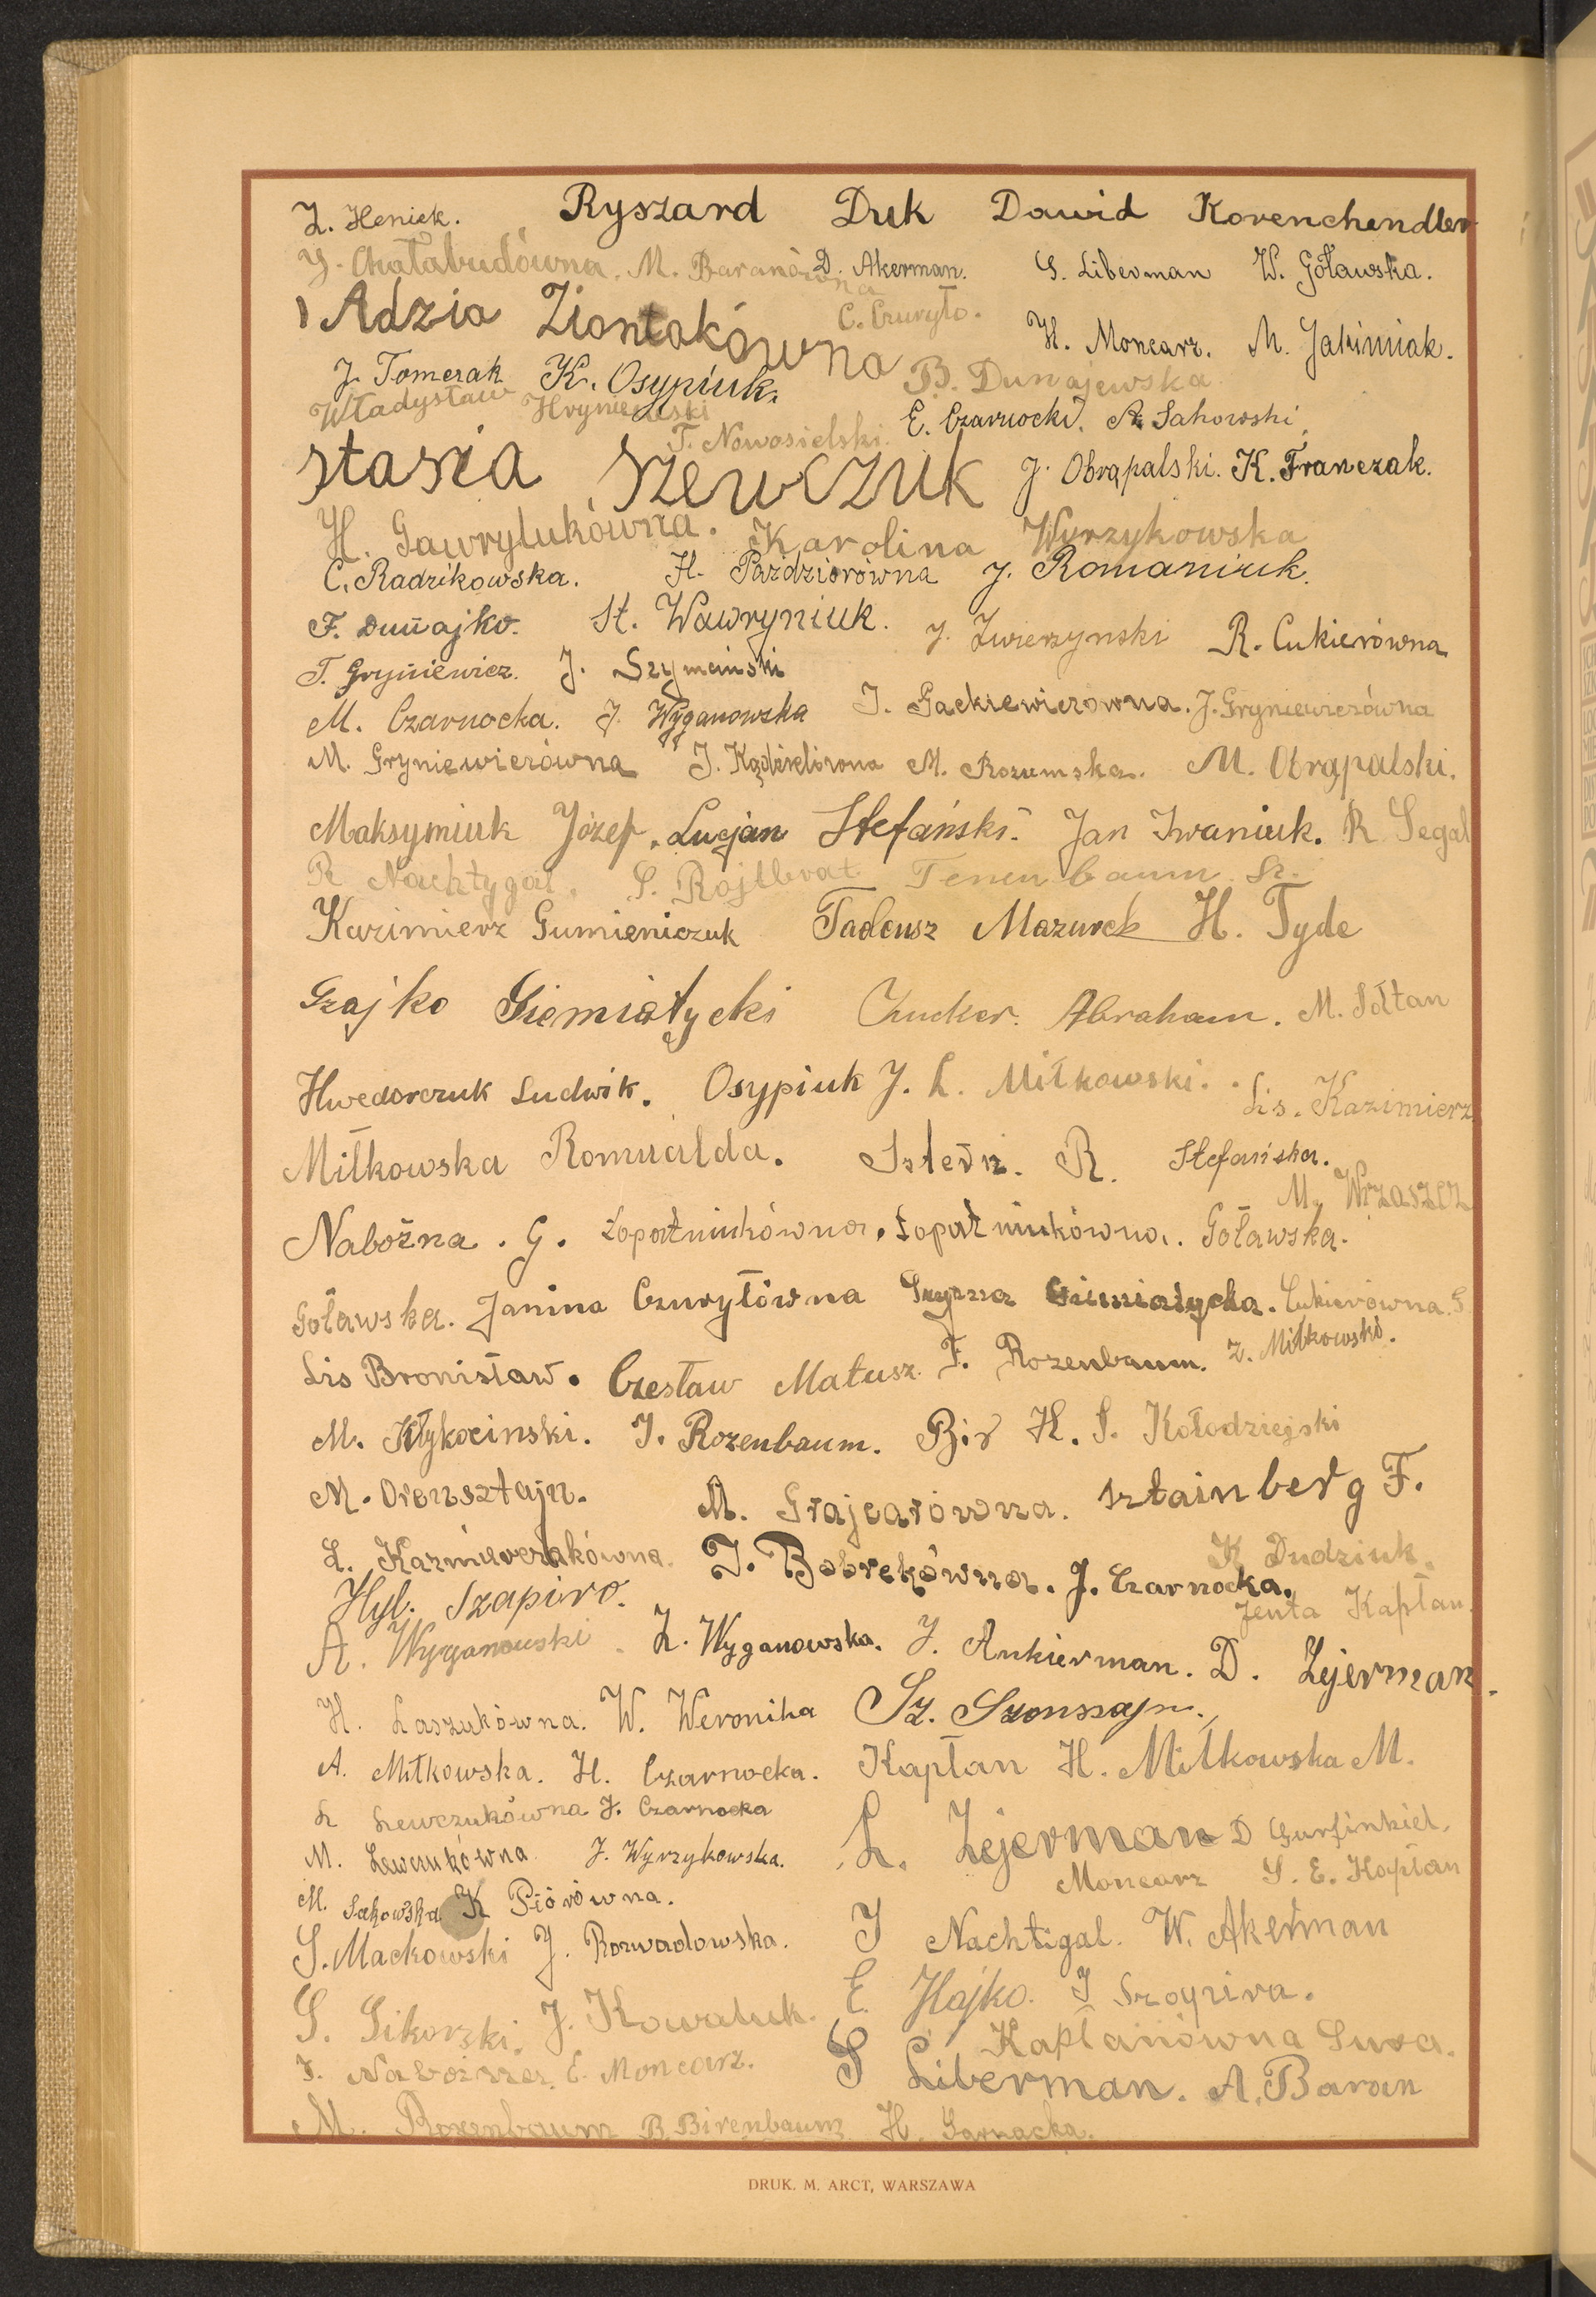 L. Heniek. Ryszard Duk Dawid Korenchendler
J. Chałabudówna. M. Baranówna D. Akerman. S. Liberman W. Goławska.
Adzia Ziontakówna C. Czuryło. H. Moncarz. M. Jakimiak.
J. Tomczak K. Osypiuk. B. Dunajewska.
Władysław Hryniewski T. Nowosielski. E. Czarnocki. A. Sakowski.
Stasia Szewczuk J. Obrąpalski. K. Franczak.
H. Gawrylukówna. Karolina Wyrzykowska
C. Radzikowska. H. Pażdziorówna J. Romaniuk.
F. Dunajko. St. Wawryniuk. J. Zwierzynski R. Cukierówna
T. Gryniewicz. J. Szymański
M. Czarnocka. J. Wyganowska J. Gackiewiczowna. J. Gryniewiczówna
M. Gryniewiczówna J. M. Rozumska. M. Obrąpalski.
Maksymiuk Józef. Lucjan Stefański. Jan Iwaniuk. R Segal
R Nachtygal. S. Rajtbrat Tenenbaum Sz.
Kazimierz Gumieniczuk Tadeusz Mazurek H. Tyde
Szajko Siemiatycki Cucker. Abraham. M. Sołtan
Hwedorczuk Ludwik. Osypiuk J. L. Miłkowski. Lis. Kazimierz
Miłkowska Romualda. Sztern. R. Stefańska.
M. Wrzaszcz
Nabożna. G. Łopatniukówna. Łopatniukówna. Goławska.
Goławska. Janina Czuryłówna Siemiatycka. Cukierówna. S.
Lis Bronisław. Czesław Matusz. F. Rozenbaum. Z. Miłkowski.
M. Kłykocinski. J. Rozenbaum. Bir H. S. Kołodziejski
M. Orensztajn. M. Grajcarówna. Sztainberg F.
L. Kazmierczakówna. J. Bobrekówna. J. Czarnocka. K Dudziuk.
Hyl. Szapiro. Jenta Kapłan.
A. Wyganowski. Z. Wyganowska. J. Ankierman. D. Lejerman.
H. Laszukówna. W. Weronika Sz. Szonszajn.
A. Miłkowska. H. Czarnocka. Kapłan H. Miłkowska M.
L Lewczukówna J. Czarnocka
M. Lewczukówna J. Wyrzykowska. L. Lejerman D Gurfinkiel.
Moncarz S. E. Kapłan
M. Sakowska K Piórówna.
S. Mackowski J. Rozwadowska. J Nachtigal. W. Akerman
S. Sikorski. J. Kowaluk. E. Hajko. J Szapira.
Kapłanówna Sura.
J. Nabożna. E. Moncarz. S Liberman. A. Baran
M. Rozenbaum B. Birenbaum H. Sarnacka.
DRUK. M. ARCT, WARSZAWA